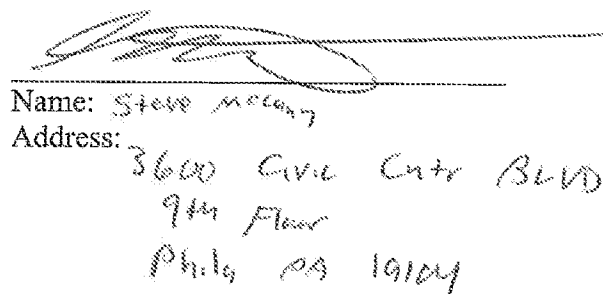 Name: Steve McCann
Address:
3600 Civic Cntr BLVD
9th Floor
Phila PA 19104